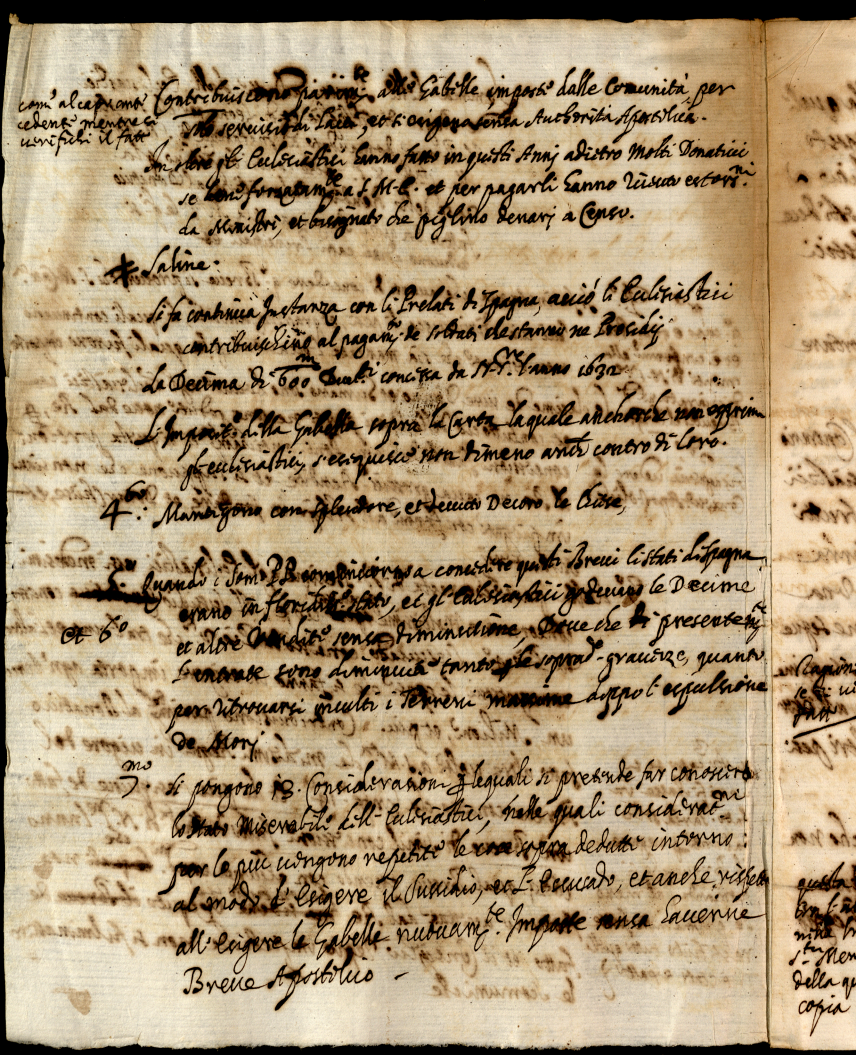 com' al capo ante
cedente mentre si
verifichi il fatto
Contribuiscono parim.te alle Gabelle imposte dalle Comunità per
servitio di Laici, et si exigono senza Authorità Apostolica.
In oltre gl' Ecclesiastici hanno fatto in questi Anni adietro molti Donativi
se ben forzatam.te a S. M. C. et per pagarli hanno
da Ministri, et bisognato che piglino denari a Censo.
Saline.
Si fa continua Instanza con li Prelati di Spagna, acciò li Ecclesiastici
contribuischino al pagam.to de soldati che stanno ne Presidij
La Decima di 600m Duc.ti concessa da N. S.re l'anno 1632
L' Imposit.e della Gabella sopra la Carta laquale anchorche non
gl' ecclesiastici, s'eseguisce non dimeno anch contro di loro.
4.to: Mantengono con splendore, et devuto Decoro le Chiese,
Quando i Som. PP. cominciorno a concedere questi Brevi li stati di Spagna
erano in floridiss.o stato, et gl' Ecclesiastici godevano le Decime
et 6.o
et altre Rendite senza diminutione, Dove che di presente
L' entrate sono diminuite tanto p le soprad.e gravezze, quanto
per ritrovarsi inculti i Terreni massime doppo l' espulsione
de Mori
7.mo Si pongono 13. Considerationi p lequali si pretende far conoscere
lo stato miserabile dell' Ecclesiastici, nelle quali considerat.ni
per le più vengono repetite le cose sopra dedutte intorno
al modo d' esigere il Sussidio, et l' Escusado, et anche rispetto
all' esigere le Gabelle nuovam.te Imposte senza haverne
Breve Apostolico -
questa
della qu
copia